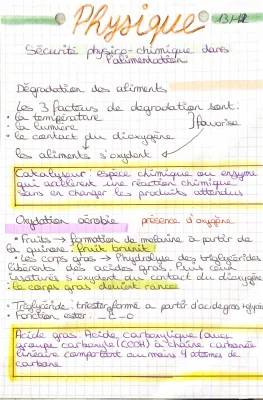 Physique
13/12
Sécurité physico-chimique dans
l'alimentation
Dégradation des aliments
Les 3 facteurs de dégradation sont:
• la température
• la lumière
favorise
• le contact du dioxygène
les aliments s'oxydent
Catalyseur: espèce chimique ou enzyme
qui accélèrent une réaction chimique
sans en changer les produits attendus
Oxydation aérobie
présence d'oxygène
• Fruits → formation de melanine à partir de
la quinone: fruit brunit
• les corps gras → l'hydrolyse des triglycérides
libèrent des acides gras. Puis ceux
insaturés s'oxydent du contact du dioxygène
: le corps gras devient rance
• Triglycéride: triester formé a partir d'acide gras +
• Fonction ester:
Acide gras: Acide carboxylique (avec
groupe carboxyle (COOH) à chaîne carbonée
linéaire comportant au moins 4 atomes de
carbone